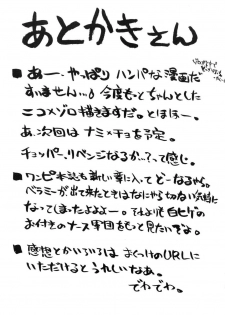 あとがきさん
■ あー、やっぱりハンパな漫画だ
すいません…♪ 今度もっとちゃんとした
ニコ×ゾロ描きますだ。とほほー。
あ、次回はナミ×チョを予定。
チョッパー、リベンジなるか…？って感じ。
■ ワンピ本誌も新しい章に入ってどーなるやら。
ベラミーが出て来たときはなにやら切ない気持に
なってしまったよよよー。でもよりも白ヒゲの
お付きのナース軍団をもっと見たいぞ。
■ 感想とかいろいろは おくづけのURLに
いただけるとうれしいなあ。
でわでわ。